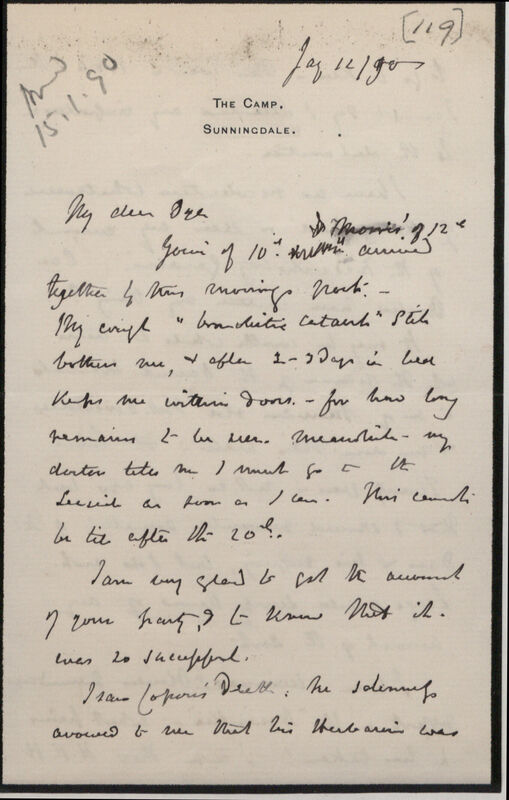 [119]
Jan 12/90
15.1.90
THE CAMP,
SUNNINGDALE.
My dear Dyer
Yours of 10th & Morris' of 12th arrived
together by this mornings post. –
My cough "bronchitic catarrh" still
bothers me, & after 2-3 days in bed
keeps me within doors. – for how long
remains to be seen. Meanwhile my
doctor tells me I must go to the
Seaside as soon as I can. This cannot
be till after the 20th.
I am very glad to get the account
of your party, & to know that it
was so successful.
I saw Death: he solemnly
avowed to me that his Herbarium was